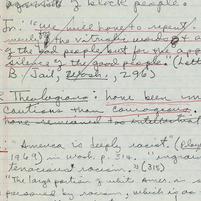 of black people.
In: "we will have to repent
the vitriolic words &
of the bad people but for the
silence of the good people." (Lett
B Jail, 296)
Theologians: have been
cautious than courageous.
have remained
"America is deeply racist."
1969) in Wash. p. 314. "ingrain
tenacious racism," (315)
"The large portion of whit Amer. n s
by racism, which is as